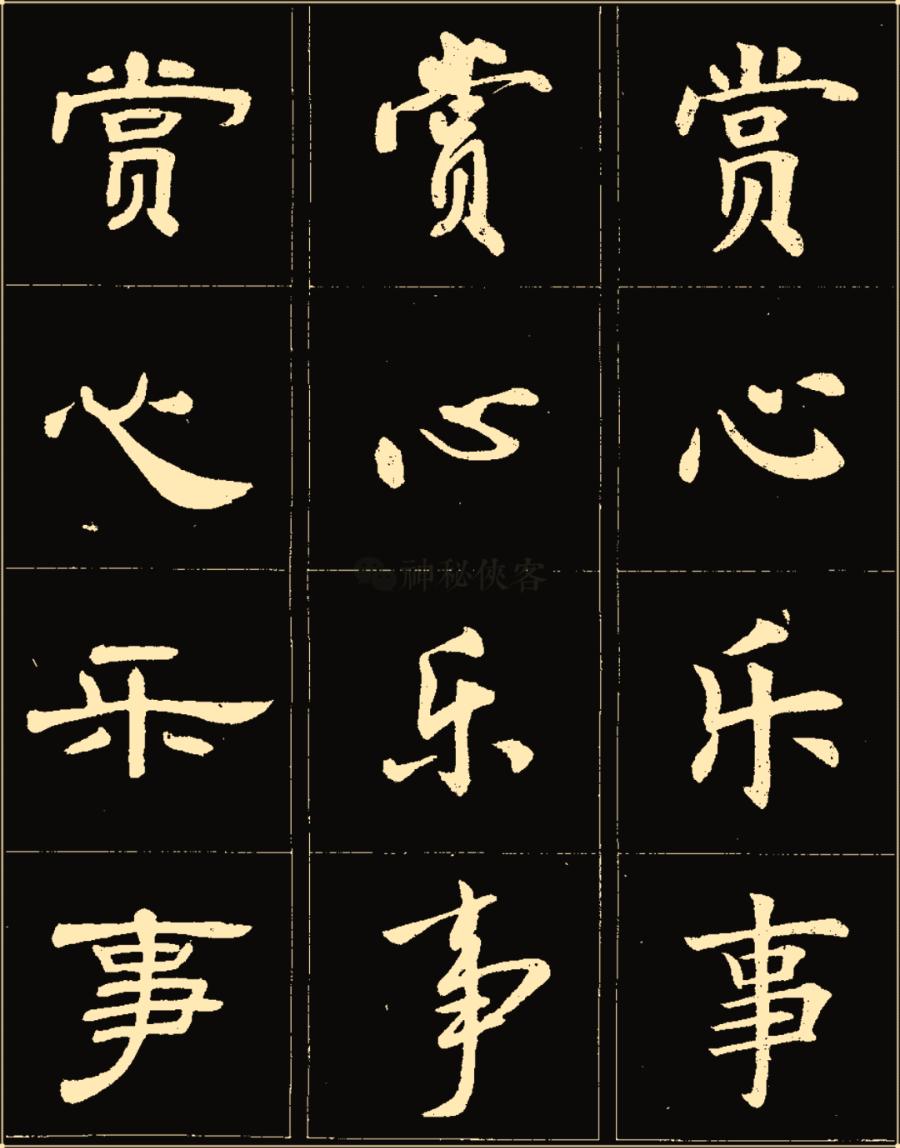 赏心乐事
赏心乐事
赏心乐事
神秘侠客